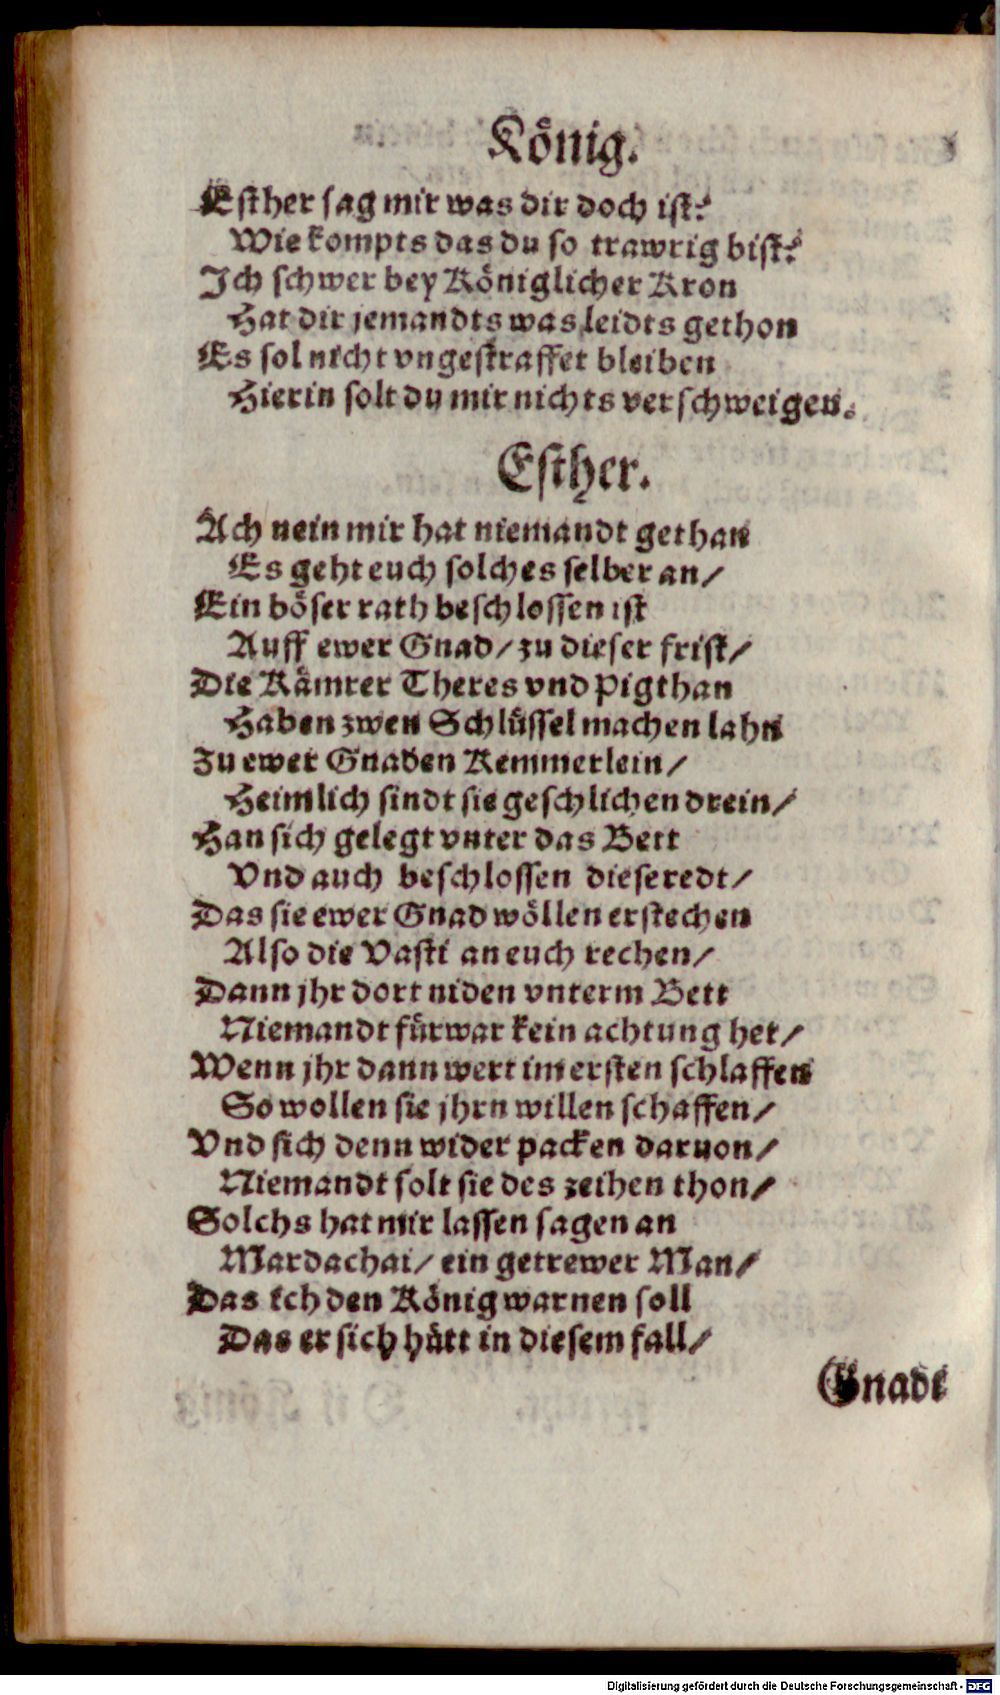 König.
Esther sag mir was dir doch ist?
Wie kompts das du so trawrig bist?
Ich schwer bey Königlicher Kron
Hat dir jemandts was leidts gethon
Es sol nicht vngestraffet bleiben
Hierin solt du mir nichts verschweigen.
Esther.
Ach nein mir hat niemandt gethan
Es geht euch solches selber an/
Ein böser rath beschlossen ist
Auff ewer Gnad/ zu dieser frist/
Die Kämrer Theres vnd Pigthan
Haben zwen Schlüssel machen lahn
Zu ewer Gnaden Kemmerlein/
Heimlich sindt sie geschlichen drein/
Han sich gelegt vnter das Bett
Vnd auch beschlossen diese redt/
Das sie ewer Gnad wöllen erstechen
Also die Vasti an euch rechen/
Dann jhr dort niden vnterm Bett
Niemandt fürwar kein achtung het/
Wenn jhr dann wert im ersten schlaffen
So wollen sie jhrn willen schaffen/
Vnd sich denn wider packen daruon/
Niemandt solt sie des zeihen thon/
Solchs hat mir lassen sagen an
Mardachai/ ein getrewer Man/
Das ich den König warnen soll
Das er sich hütt in diesem fall/
Gnade
Digitalisierung gefördert durch die Deutsche Forschungsgemeinschaft - DFG